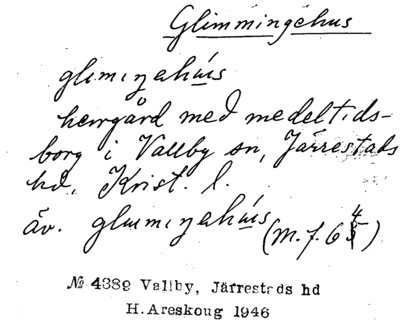 Glimmingehus
glımıŋahús
herrgård med medeltids-
borg i Vallby sn, Järrestads
hd, Krist. l.
äv. glımıŋahús (m.f. 64)
№ 4389 Vallby, Järrestads hd
H. Areskoug 1946